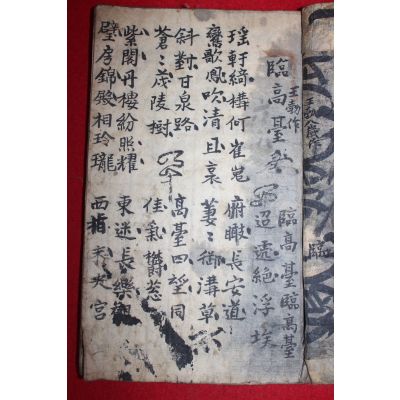 臨高臺歌 王勃作 臨高臺臨高臺
迢遞絕浮埃
瑶軒綺構何崔嵬 俯瞰長安道
鸞歌鳳吹清且哀 萋〻御溝草
斜對甘泉路 高臺四望同
蒼〻茂陵樹 佳氣欝葱
紫閣丹樓紛照耀 東迷長樂
璧房錦殿相玲瓏 西指未央宮